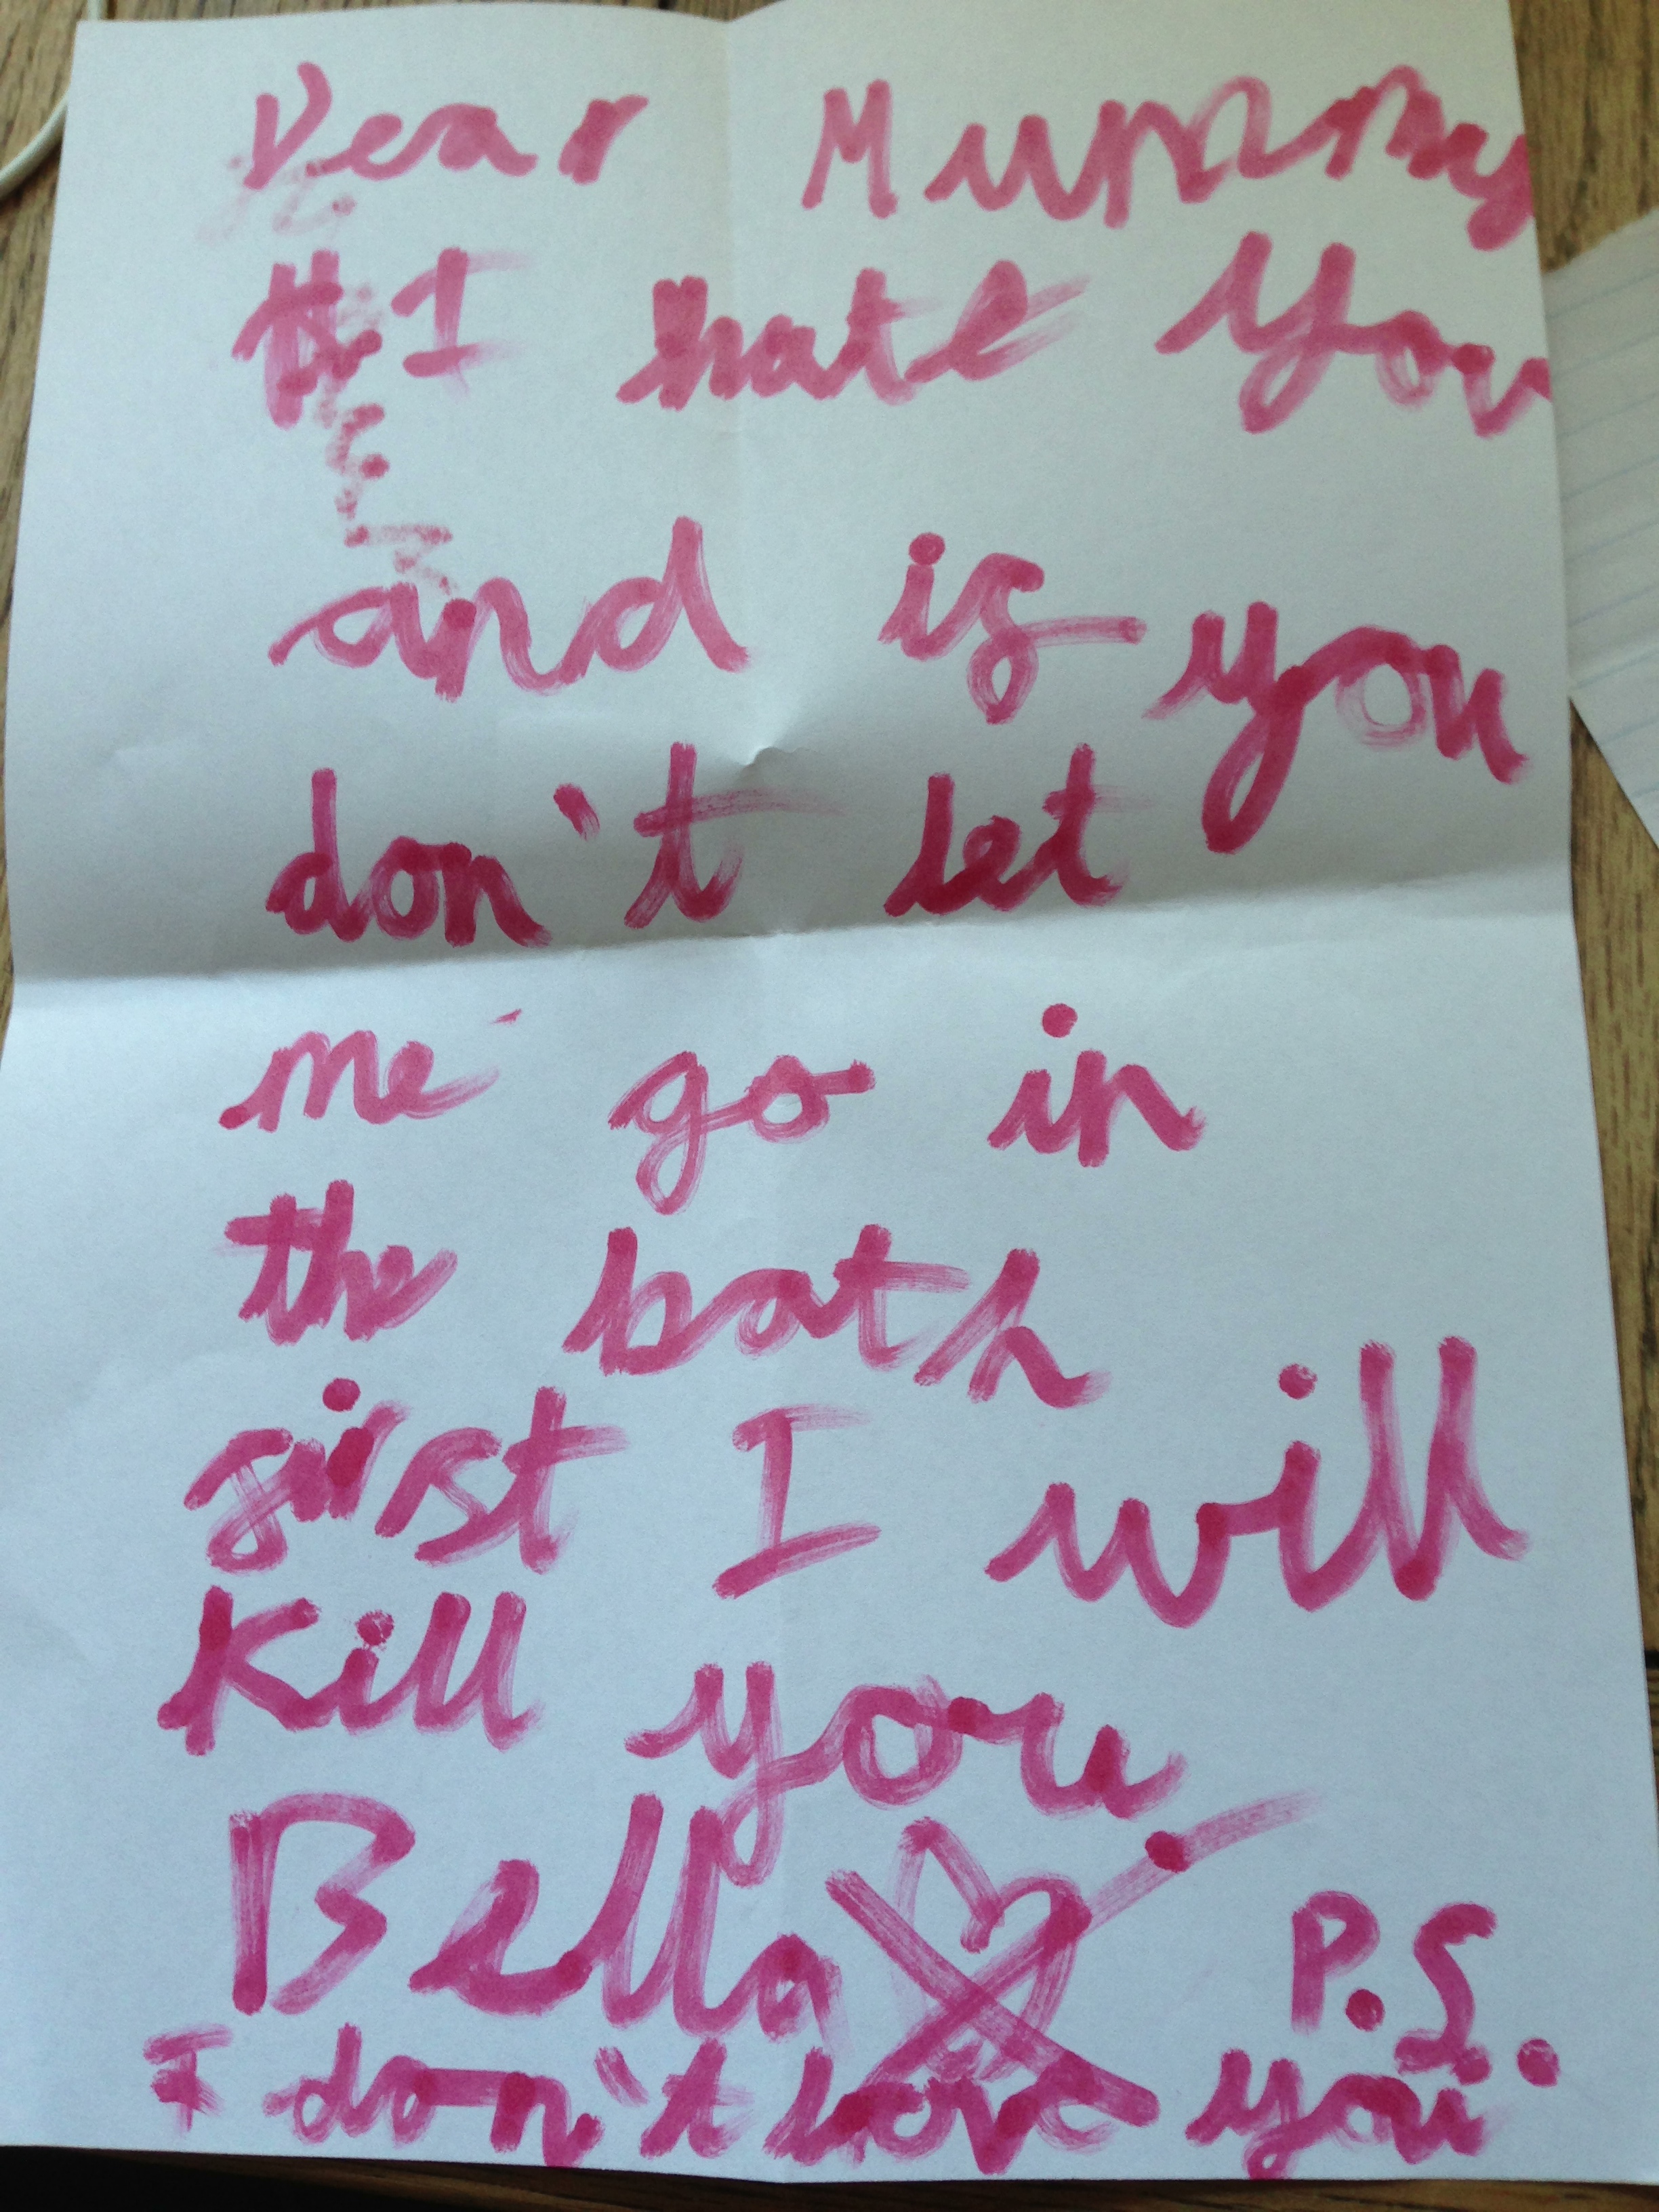 Dear Mummy
I hate you
and if you
don't let
me go in
the bath
first I will
Kill you.
Bella P.S.
I don't love you